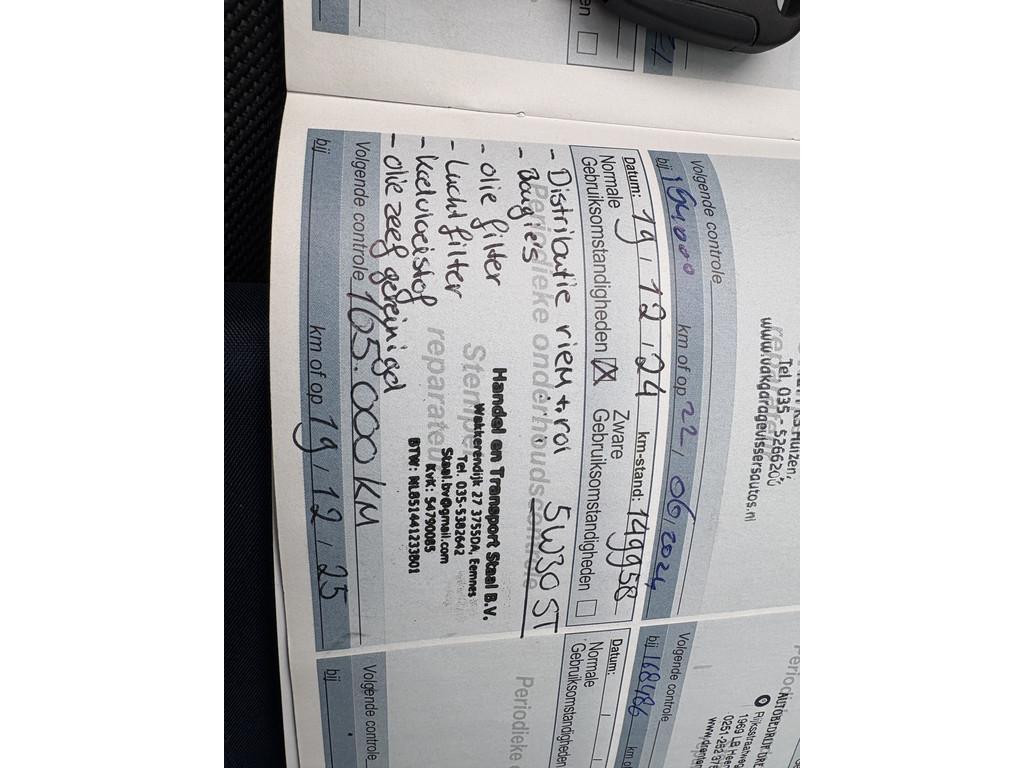 Tel. 035 - 5266200
www.vakgaragevissersautos.nl
Volgende controle
km of op 22 / 06 / 2024
Datum: 19 / 12 / 24 km-stand: 149958
Normale Gebruiksomstandigheden ☒ Zware Gebruiksomstandigheden ☐
Periodieke onderhoudscontrole
- Distributie riem + rol 5W30 ST
- Bougies
- olie filter
- Luchtfilter
- Koelvloeistof
- olie zeef gereinigd
Handel en Transport Staal B.V.
Wakkerendijk 27 3755DA, Eemnes
Tel. 035-5382642
Staal.bv@gmail.com
KvK: 54790085
BTW: NL851441233B01
Volgende controle 165.000 KM
bij km of op 19 / 12 / 25
Volgende controle
bij 168486 km
AUTOBEDRIJF
1969 LB Heem
Datum:
Normale
Gebruiksomstandigheden
Periodieke
Volgende controle
bij